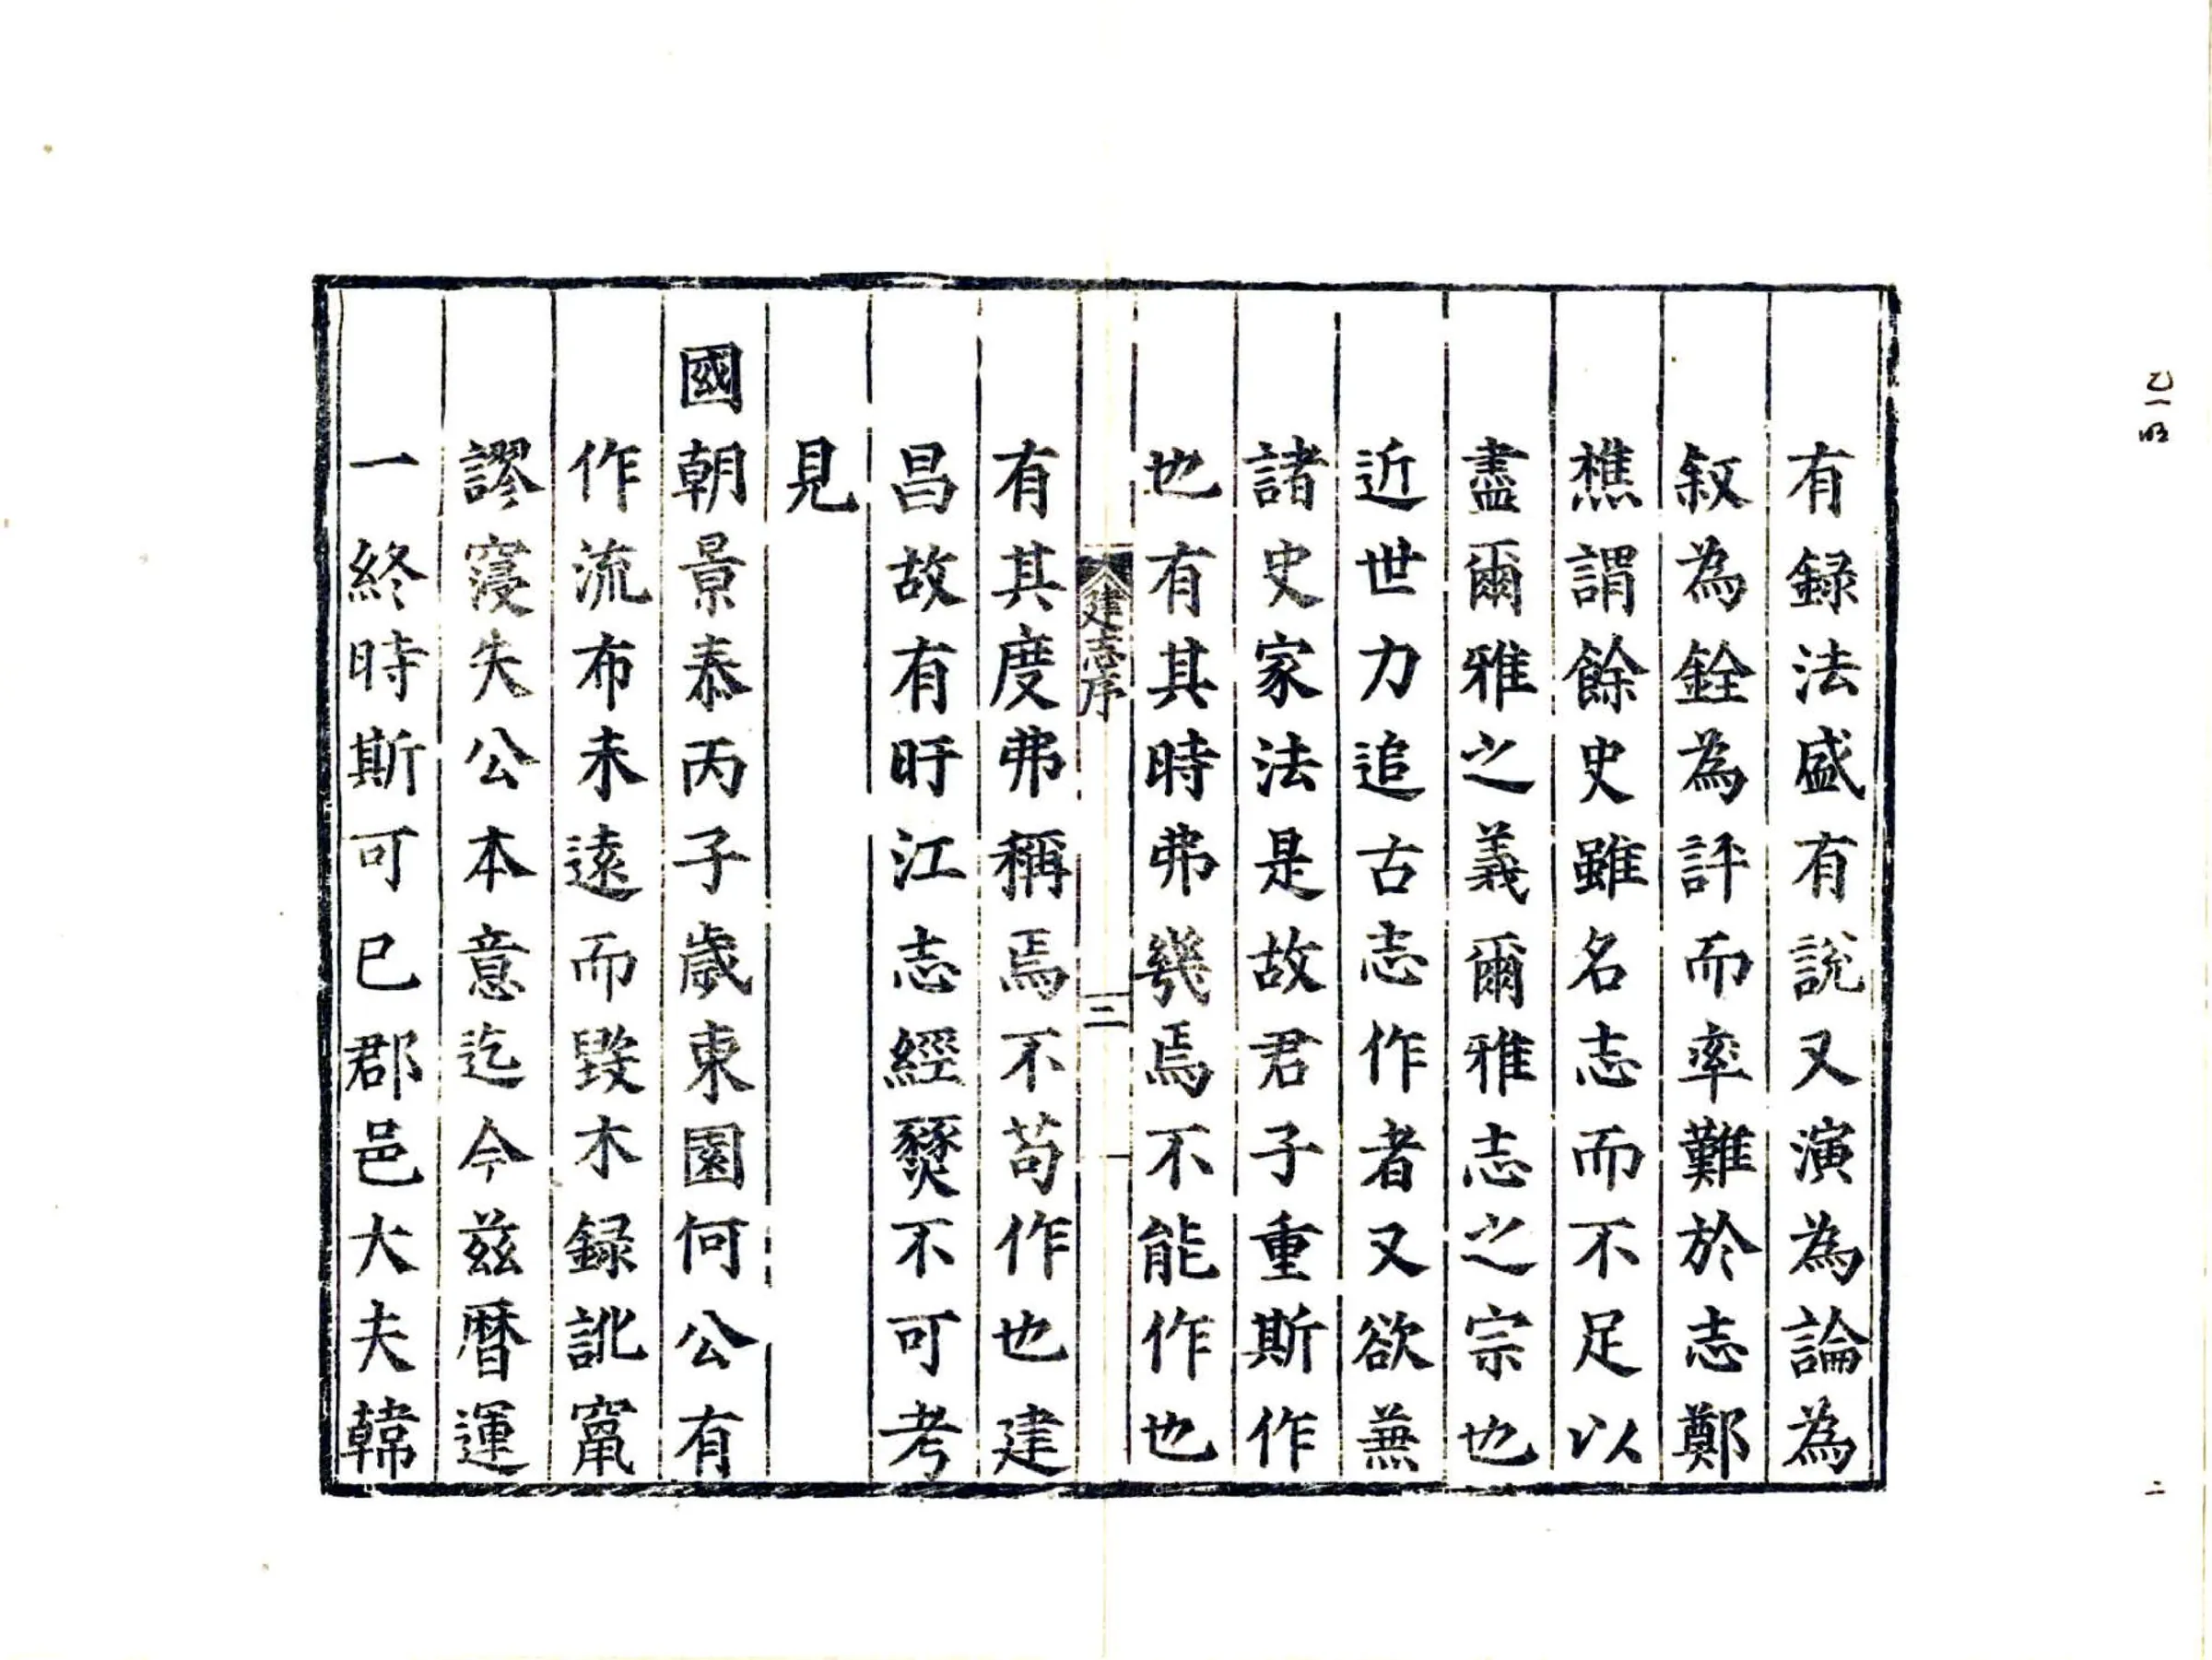 有録法盛有說又演為論為
叙為銓為評而率難於志鄭
樵謂餘史雖名志而不足以
盡爾雅之義爾雅志之宗也
近世力追古志作者又欲兼
諸史家法是故君子重斯作
也有其時弗幾焉不能作也
建志序
三
有其度弗稱焉不苟作也建
昌故有盱江志經燹不可考
見
國朝景泰丙子歲東園何公有
作流布未遠而毀木録訛竄
謬寖失公本意迄今茲曆運
一終時斯可已郡邑大夫韓
二